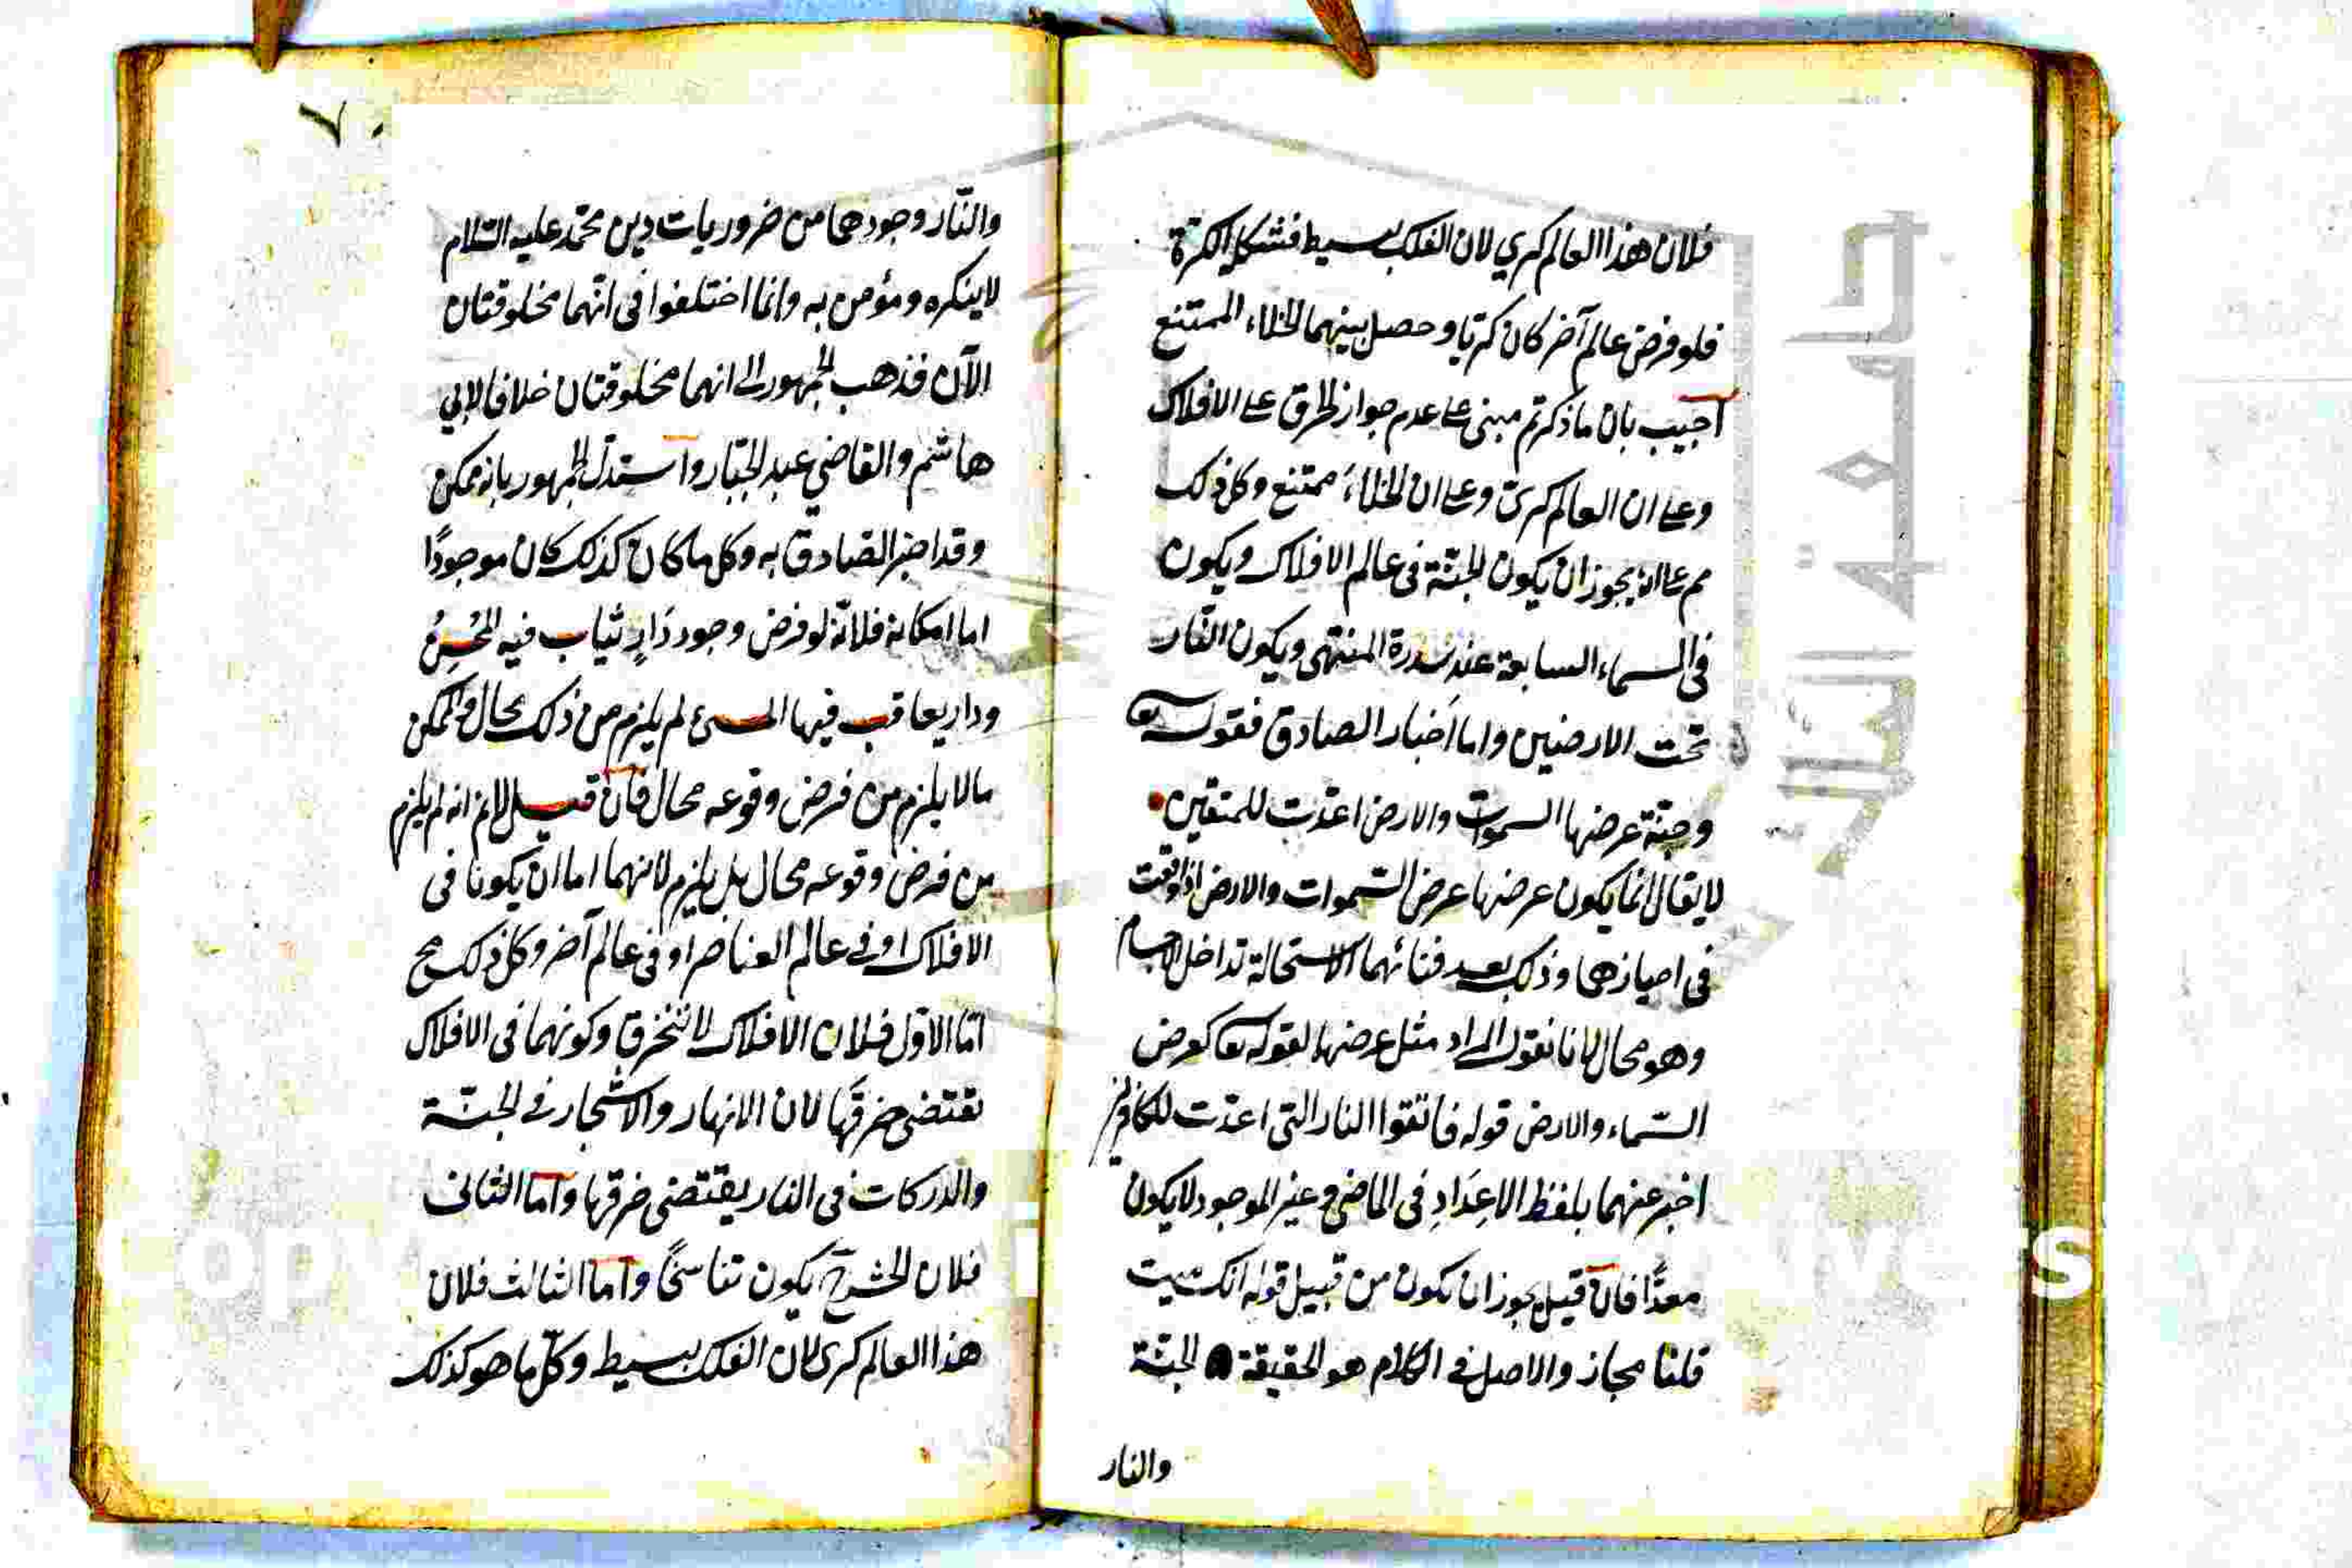 فلان هذا العالم كري لان الفلك بسيط فشكله الكرة
فلو فرض عالم آخر كان كريا وحصل بينهما الخلاء الممتنع
أجيب بان ما ذكرتم مبنى على عدم جواز الخرق على الافلاك
وعلى ان العالم كرىّ وعلى ان الخلاء ممتنع وكل ذلك
مم على انه يجوز ان يكون الجنّة فى عالم الافلاك ويكون
فى السماء السابعة عند سدرة المنتهى ويكون النّار
تحت الارضين واما اخبار الصادق فقوله تعا
وجنّة عرضها السموات والارض اعدّت للمتقين
لا يقال انما يكون عرضها عرض السّموات والارض اذا وقعت
فى احيازهما وذلك بعد فنائهما لاستحالة تداخل الاجسام
وهو محال لانا نقول المراد مثل عرضها لقوله تعا كعرض
السّماء والارض قوله فاتّقوا النار التى اعدّت للكافرين
اخبر عنهما بلفظ الاعداد فى الماضى وغير الموجود لا يكون
معدًّا فان قيل يجوز ان يكون من قبيل قوله انك ميت
قلنا مجاز والاصل فى الكلام هو الحقيقة الجنّة
والنار
٧٠
والنّار وجودهما من ضروريات دين محمّد عليه السّلام
لا ينكره ومؤمن به وانما اختلفوا فى انّهما مخلوقتان
الآن فذهب الجمهور الى انهما مخلوقتان خلافا لابي
هاشم والقاضي عبد الجبّار واستدلّ الجمهور بانه ممكن
وقد اخبر الصادق به وكل ما كان كذلك كان موجودًا
اما امكانه فلانّه لو فرض وجود دارٍ يثاب فيه المحسنُ
ودار يعاقب فيها المسئ لم يلزم من ذلك محال والممكن
ما لا يلزم من فرض وقوعه محال فان قيل لانم انه لم يلزم
من فرض وقوعه محال بل يلزم لانهما اما ان يكونا فى
الافلاك او فى عالم العناصر او فى عالم آخر وكل ذلك مح
امّا الاوّل فلان الافلاك لا تنخرق وكونهما فى الافلاك
يقتضى خرقها لان الانهار والاشجار فى الجنّة
والدركات فى النار يقتضى خرقها وامّا الثانى
فلان الحشر ح يكون تناسخًا وامّا الثالث فلان
هذا العالم كرى لان الفلك بسيط وكلّ ما هو كذلك